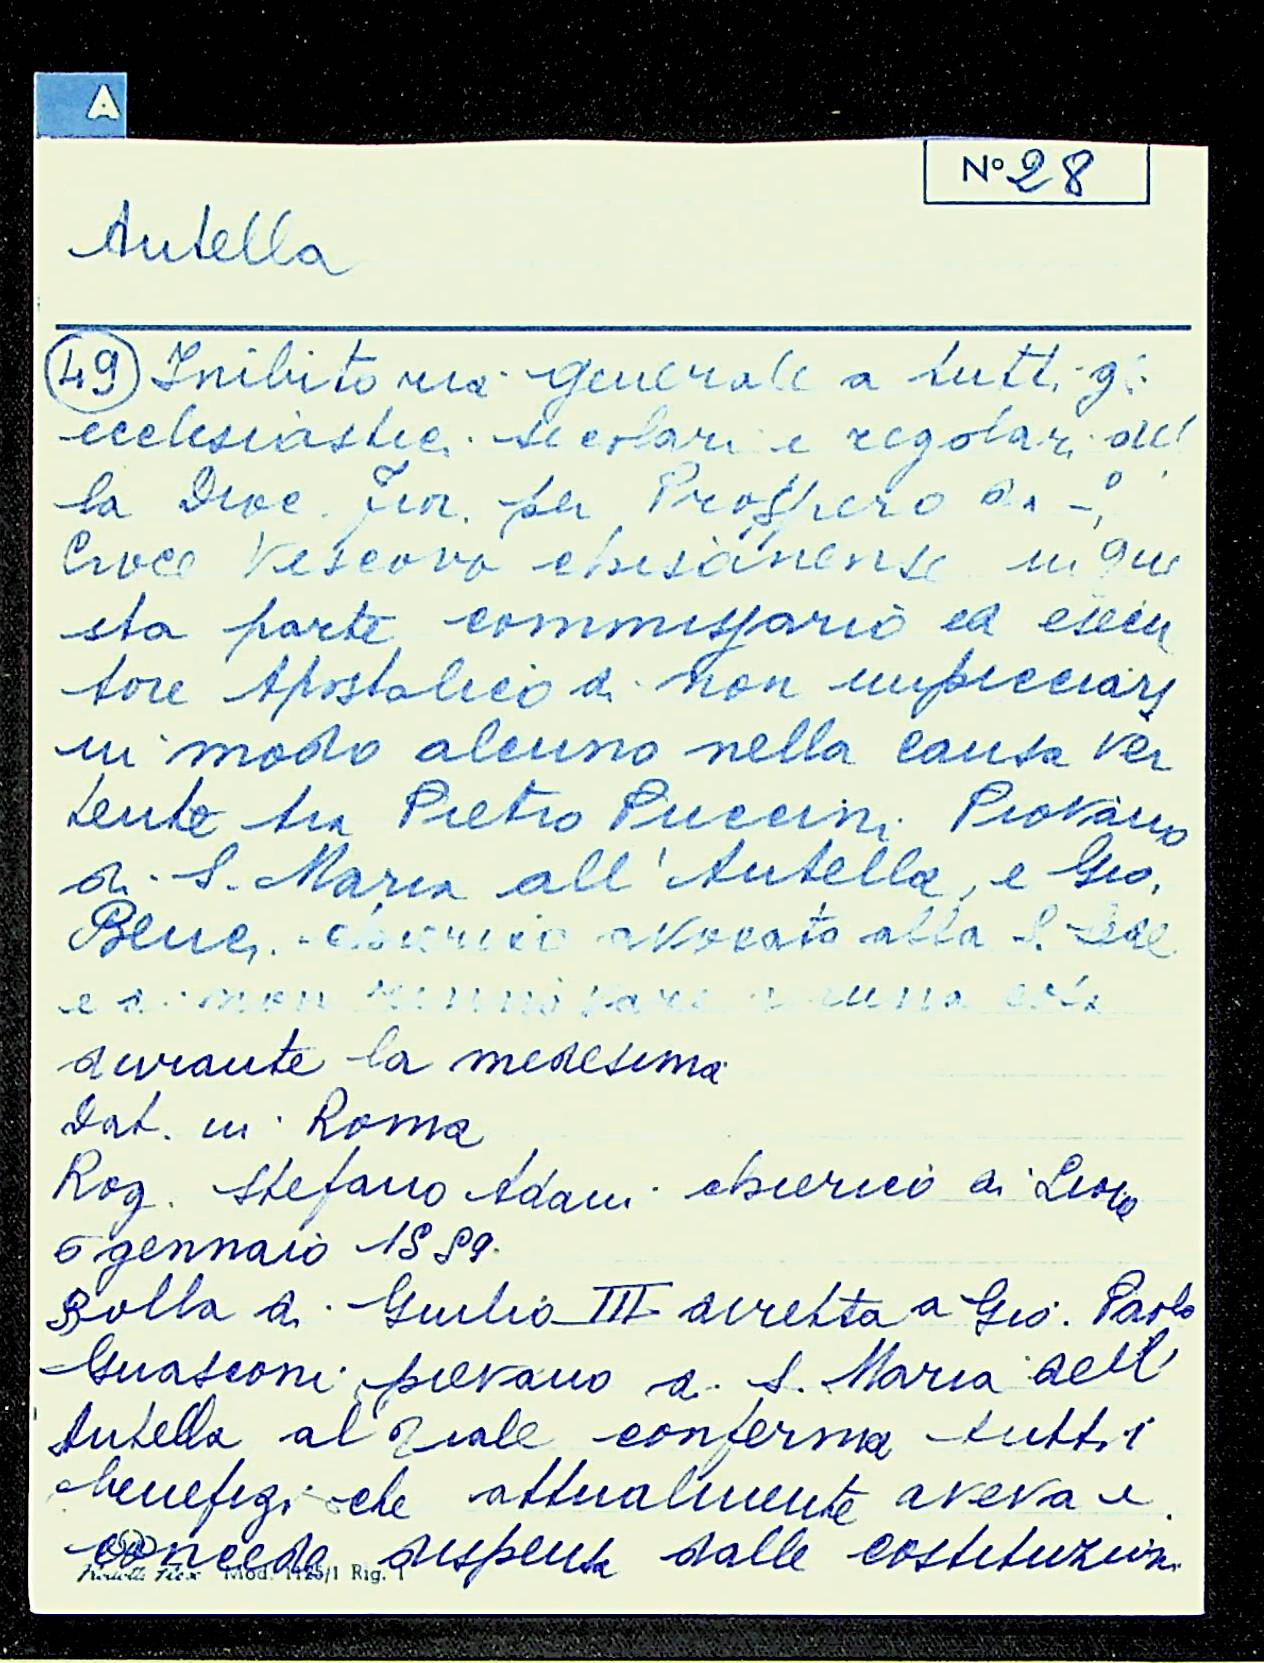 A
N° 28
Antella
49 Inibitoria generale a tutti gi
ecclesiastici secolari e regolari del
la Dioc. Fior. per Prospero da S.
Croce Vescovo chisanense in que
sta parte commissario ed esecu
tore Apostolico di non impicciars
in modo alcuno nella causa ver
tente tra Pietro Puccini Piovano
di S. Maria all'Antella, e Gio.
Benci chierico avocato alla S. Sede
e di non rinnovare cosa
durante la medesima
Dat. in Roma
Rog. Stefano Adam chierico di
6 gennaio 1559.
Bolla di Giulio III diretta a Gio. Paolo
Guasconi pievano di S. Maria dell'
Antella al quale conferma tutti i
benefizi che attualmente aveva e
concede dispensa dalle costituzioni
Mod. 1125/1 Rig. 1